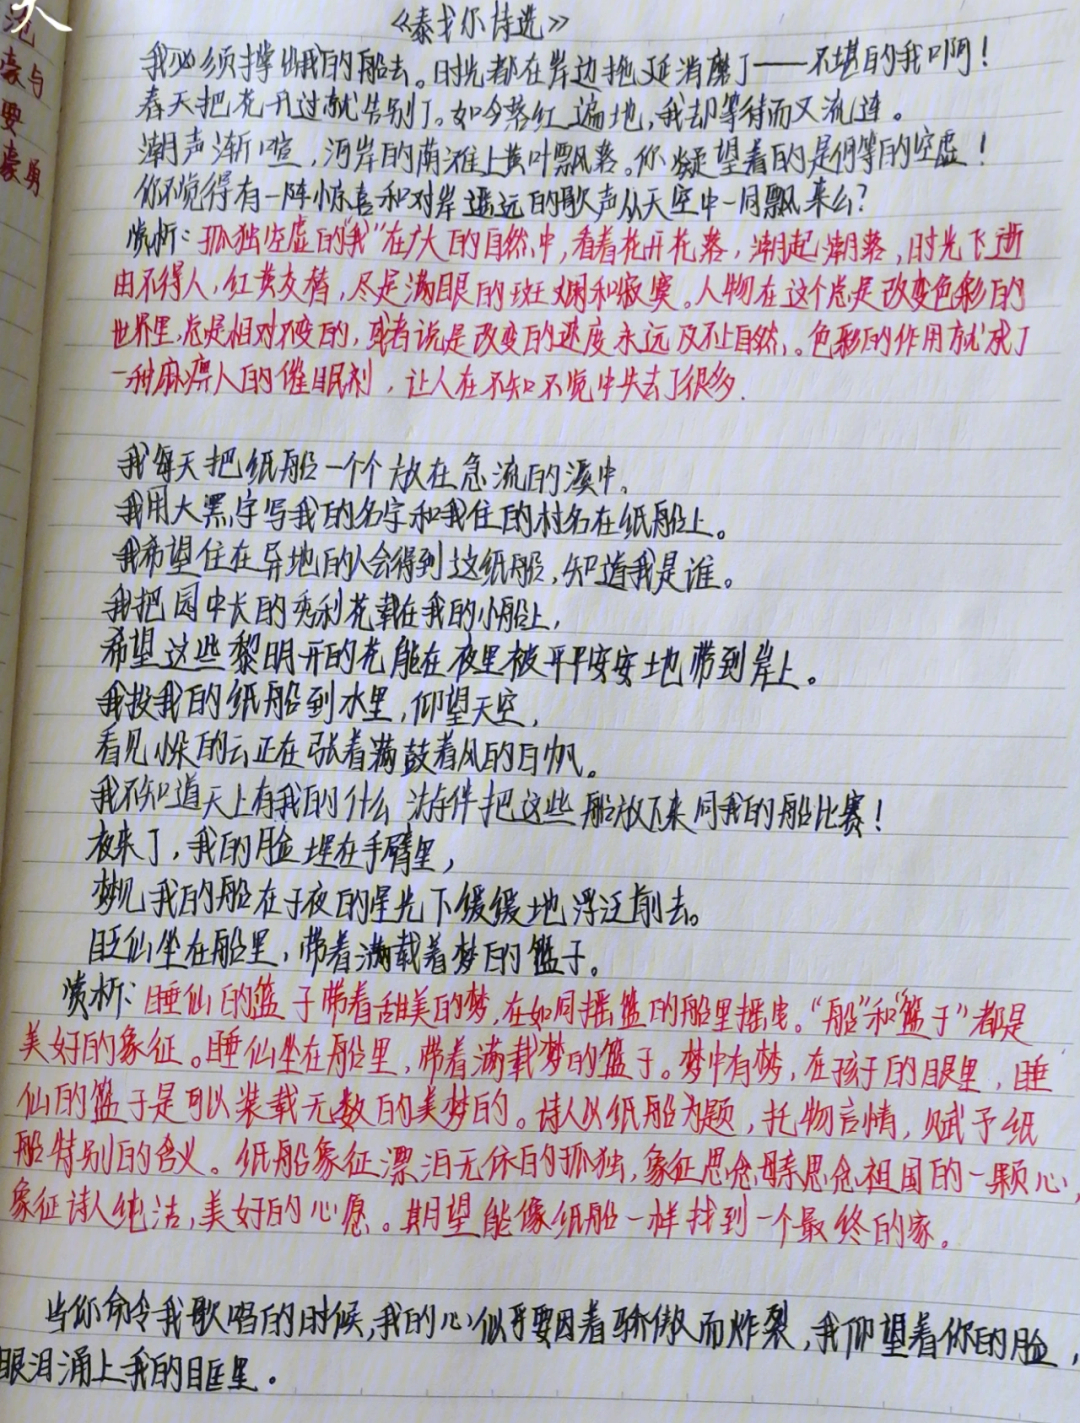 《泰戈尔诗选》
我必须撑出我的船去。时光都在岸边拖延消磨了——不堪的我啊！
春天把花开过就告别了。如今落红遍地，我却等待而又流连。
潮声渐喧，河岸的荫滩上黄叶飘落。你凝望着的是何等的空虚！
你不觉得有一阵惊喜和对岸遥远的歌声从天空中一同飘来么？
赏析：孤独空虚的“我”在广大的自然中，看着花开花落，潮起潮落，时光飞逝
由不得人，红黄交替，尽是满眼的斑斓和寂寞。人物在这个总是改变色彩的
世界里，总是相对不变的，或者说是改变的速度永远及不上自然，。色彩的作用就成了
一种麻痹人的催眠剂，让人在不知不觉中失去了很多.
我每天把纸船一个个放在急流的溪中。
我用大黑字写我的名字和我住的村名在纸船上。
我希望住在异地的人会得到这纸船，知道我是谁。
我把园中长的秀利花载在我的小船上，
希望这些黎明开的花能在夜里被平平安安地带到岸上。
我投我的纸船到水里，仰望天空，
看见小朵的云正在张着满鼓着风的白帆。
我不知道天上有我的什么游伴把这些船放下来同我的船比赛！
夜来了，我的脸埋在手臂里，
梦见我的船在子夜的星光下缓缓地浮泛前去。
睡仙坐在船里，带着满载着梦的篮子。
赏析：睡仙的篮子带着甜美的梦，在如同摇篮的船里摇曳。“船”和“篮子”都是
美好的象征。睡仙坐在船里，带着满载梦的篮子。梦中有梦，在孩子的眼里，睡
仙的篮子是可以装载无数的美梦的。诗人以纸船为题，托物言情，赋予纸
船特别的含义。纸船象征漂泊无依的孤独，象征思念母亲思念祖国的一颗心，
象征诗人纯洁，美好的心愿。期望能像纸船一样找到一个最终的家。
当你命令我歌唱的时候，我的心似乎要因着骄傲而炸裂，我仰望着你的脸，
眼泪涌上我的眶里。